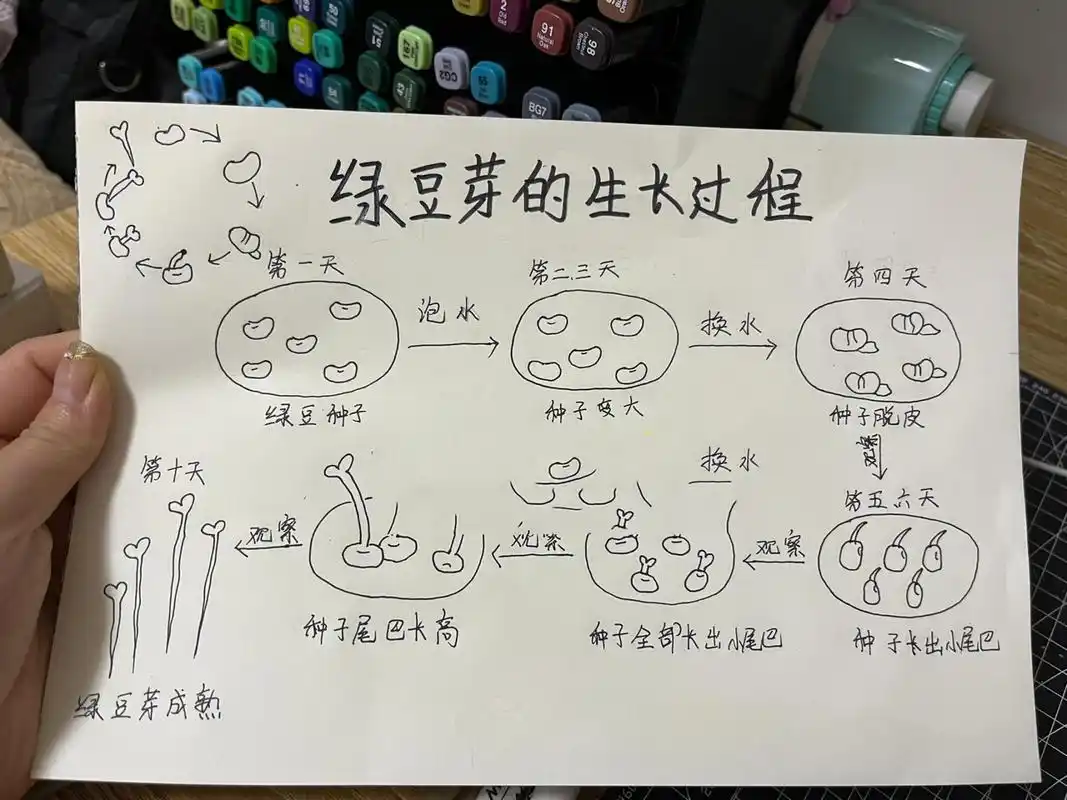 绿豆芽的生长过程
第一天
泡水
第二.三天
换水
第四天
绿豆种子
种子变大
种子脱皮
第五六天
观察
种子长出小尾巴
换水
种子全部长出小尾巴
观察
种子尾巴长高
观察
第十天
绿豆芽成熟
91
Natural Oak
98
Chestnut Brown
CG2
BG7